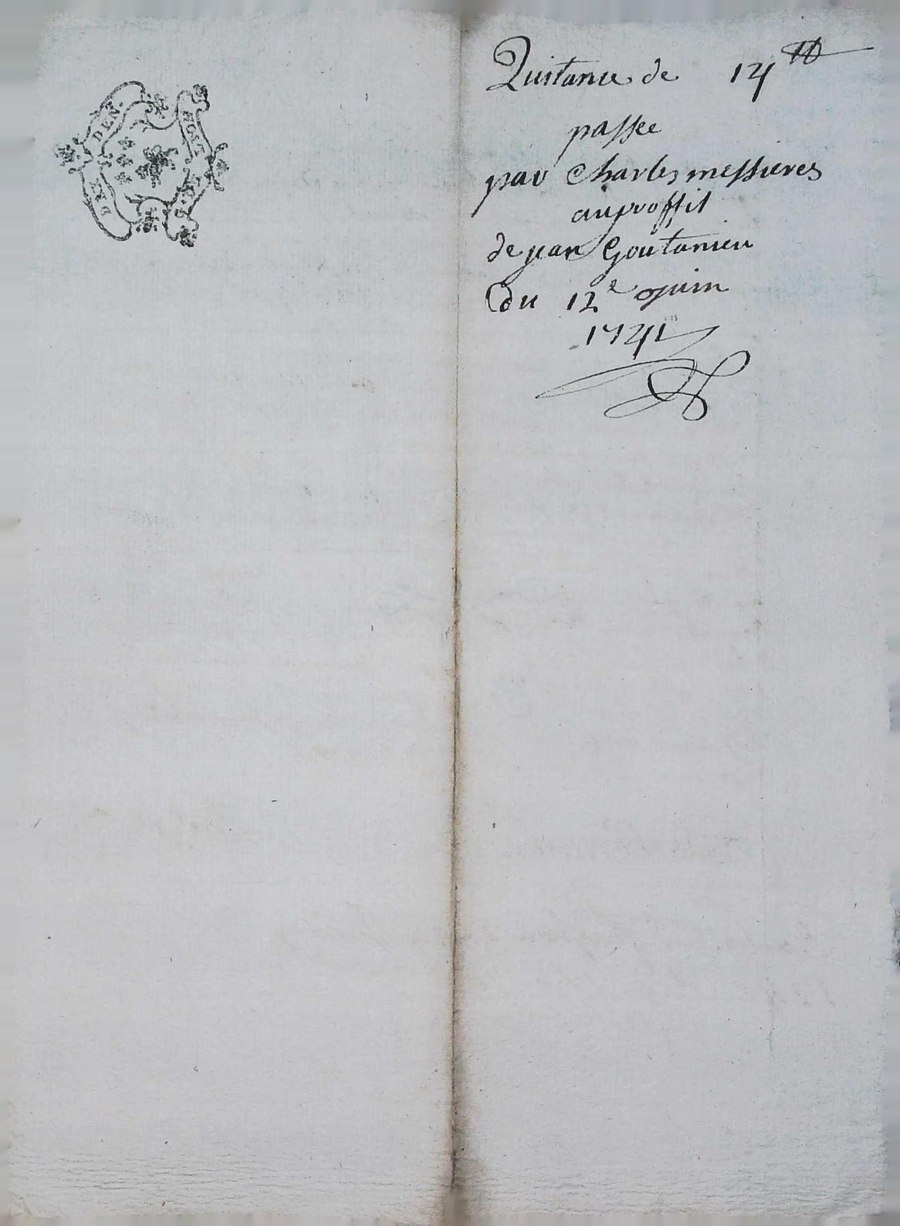 DEN.
Quitance de 14 tt
passée
par Charles messieres
au proffit
de jean Goutanieu
Du 12e juin
1741